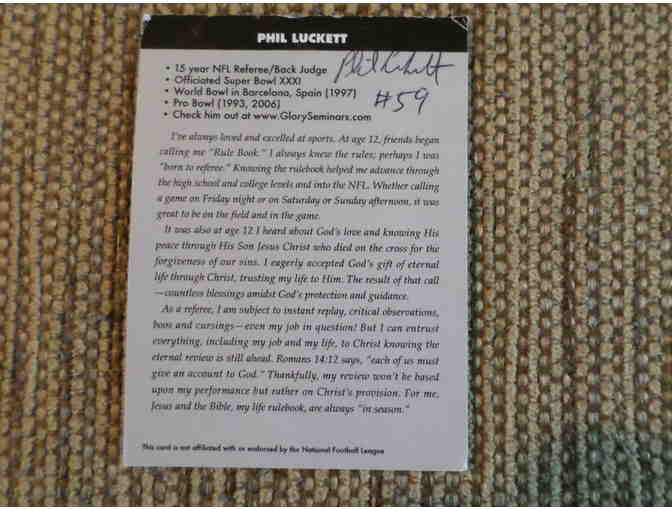 PHIL LUCKETT
• 15 year NFL Referee/Back Judge
• Officiated Super Bowl XXXI
• World Bowl in Barcelona, Spain (1997)
• Pro Bowl (1993, 2006)
• Check him out at www.GlorySeminars.com
Phil Luckett
#59
I've always loved and excelled at sports. At age 12, friends began
calling me "Rule Book." I always knew the rules; perhaps I was
"born to referee." Knowing the rulebook helped me advance through
the high school and college levels and into the NFL. Whether calling
a game on Friday night or on Saturday or Sunday afternoon, it was
great to be on the field and in the game.
It was also at age 12 I heard about God's love and knowing His
peace through His Son Jesus Christ who died on the cross for the
forgiveness of our sins. I eagerly accepted God's gift of eternal
life through Christ, trusting my life to Him. The result of that call
—countless blessings amidst God's protection and guidance.
As a referee, I am subject to instant replay, critical observations,
boos and cursings—even my job in question! But I can entrust
everything, including my job and my life, to Christ knowing the
eternal review is still ahead. Romans 14:12 says, "each of us must
give an account to God." Thankfully, my review won't be based
upon my performance but rather on Christ's provision. For me,
Jesus and the Bible, my life rulebook, are always "in season."
This card is not affiliated with or endorsed by the National Football League